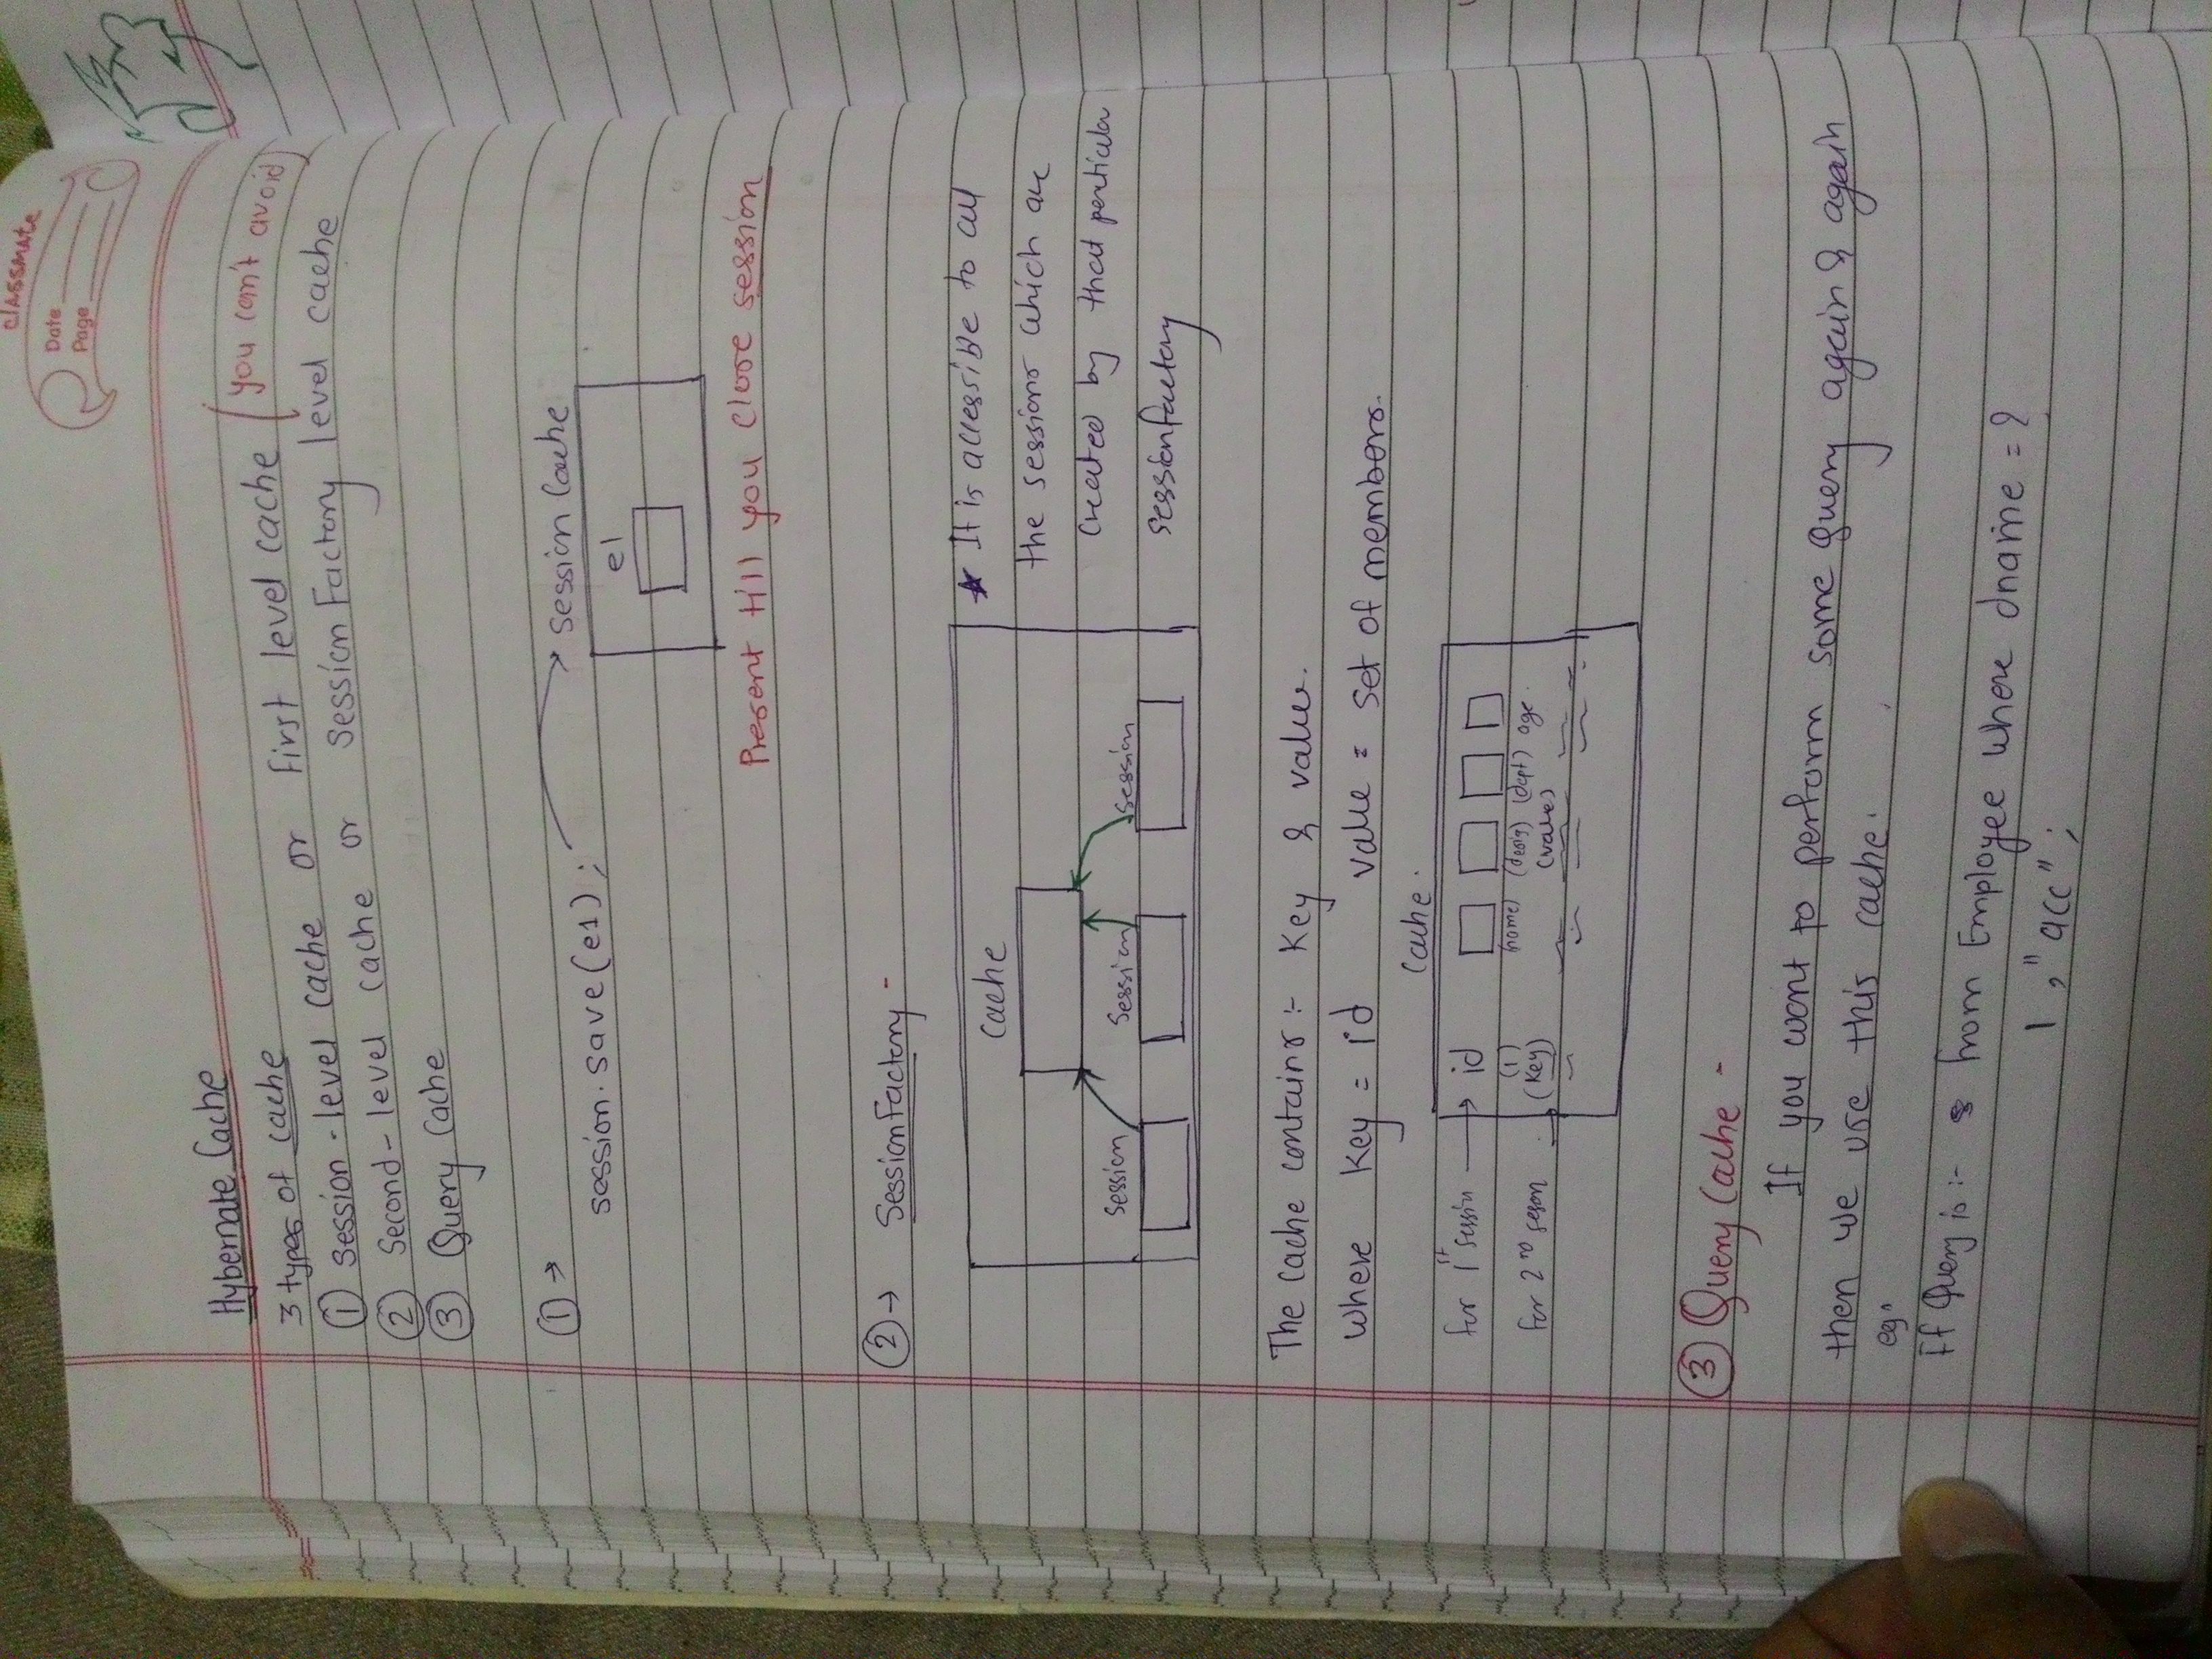 classmate
Date
Page
Hybernate Cache
3 types of cache
① session-level cache or first level cache (you can't avoid)
② Second-level cache or Session Factory level cache
③ Query Cache
① →
session.save(e1); → session Cache
e1
Present till you close session
② → SessionFactory -
Cache
Session Session Session
★ It is accessible to all
the sessions which are
created by that perticular
sessionfactory
The Cache contains :- Key & value.
where key = id value = set of members.
Cache.
for 1st session → id
(1) (name) (desig) (dept) age.
for 2nd (Key) (value)
③ Query Cache -
If you want to perform some query again & again
then we use this cache.
eg.
If Query is :- from Employee where dname = ?
1, "acc";